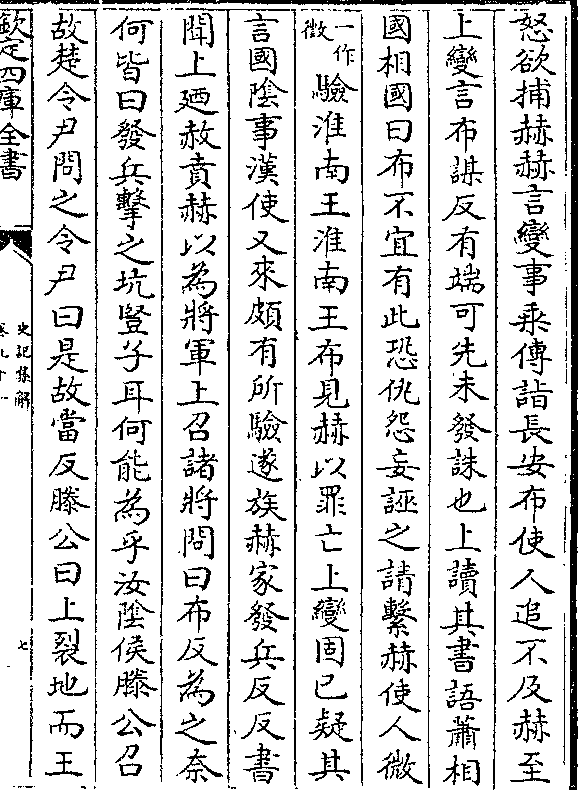 怒欲捕赫赫言變事乘傳詣長安布使人追不及赫至
上變言布謀反有端可先未發誅也上讀其書語蕭相
國相國曰布不宜有此恐仇怨妄誣之請繫赫使人微
一作徴驗淮南王淮南王布見赫以罪亡上變固已疑其
言國隂事漢使又來頗有所驗遂族赫家發兵反反書
聞上廼赦賁赫以為將軍上召諸將問曰布反為之奈
何皆曰發兵擊之坑豎子耳何能為乎汝隂侯滕公召
故楚令尹問之令尹曰是故當反滕公曰上裂地而王
欽定四庫全書
史記集解
卷九十一
七